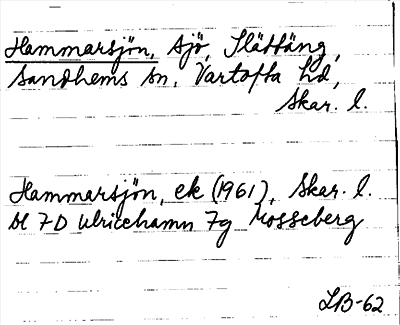 Hammarsjön, sjö, Slättäng,
Sandhems sn, Vartofta hd,
Skar. l.
Hammarsjön, ek (1961), Skar. l.
bl 7D Ulricehamn 7g Mosseberg
LB-62